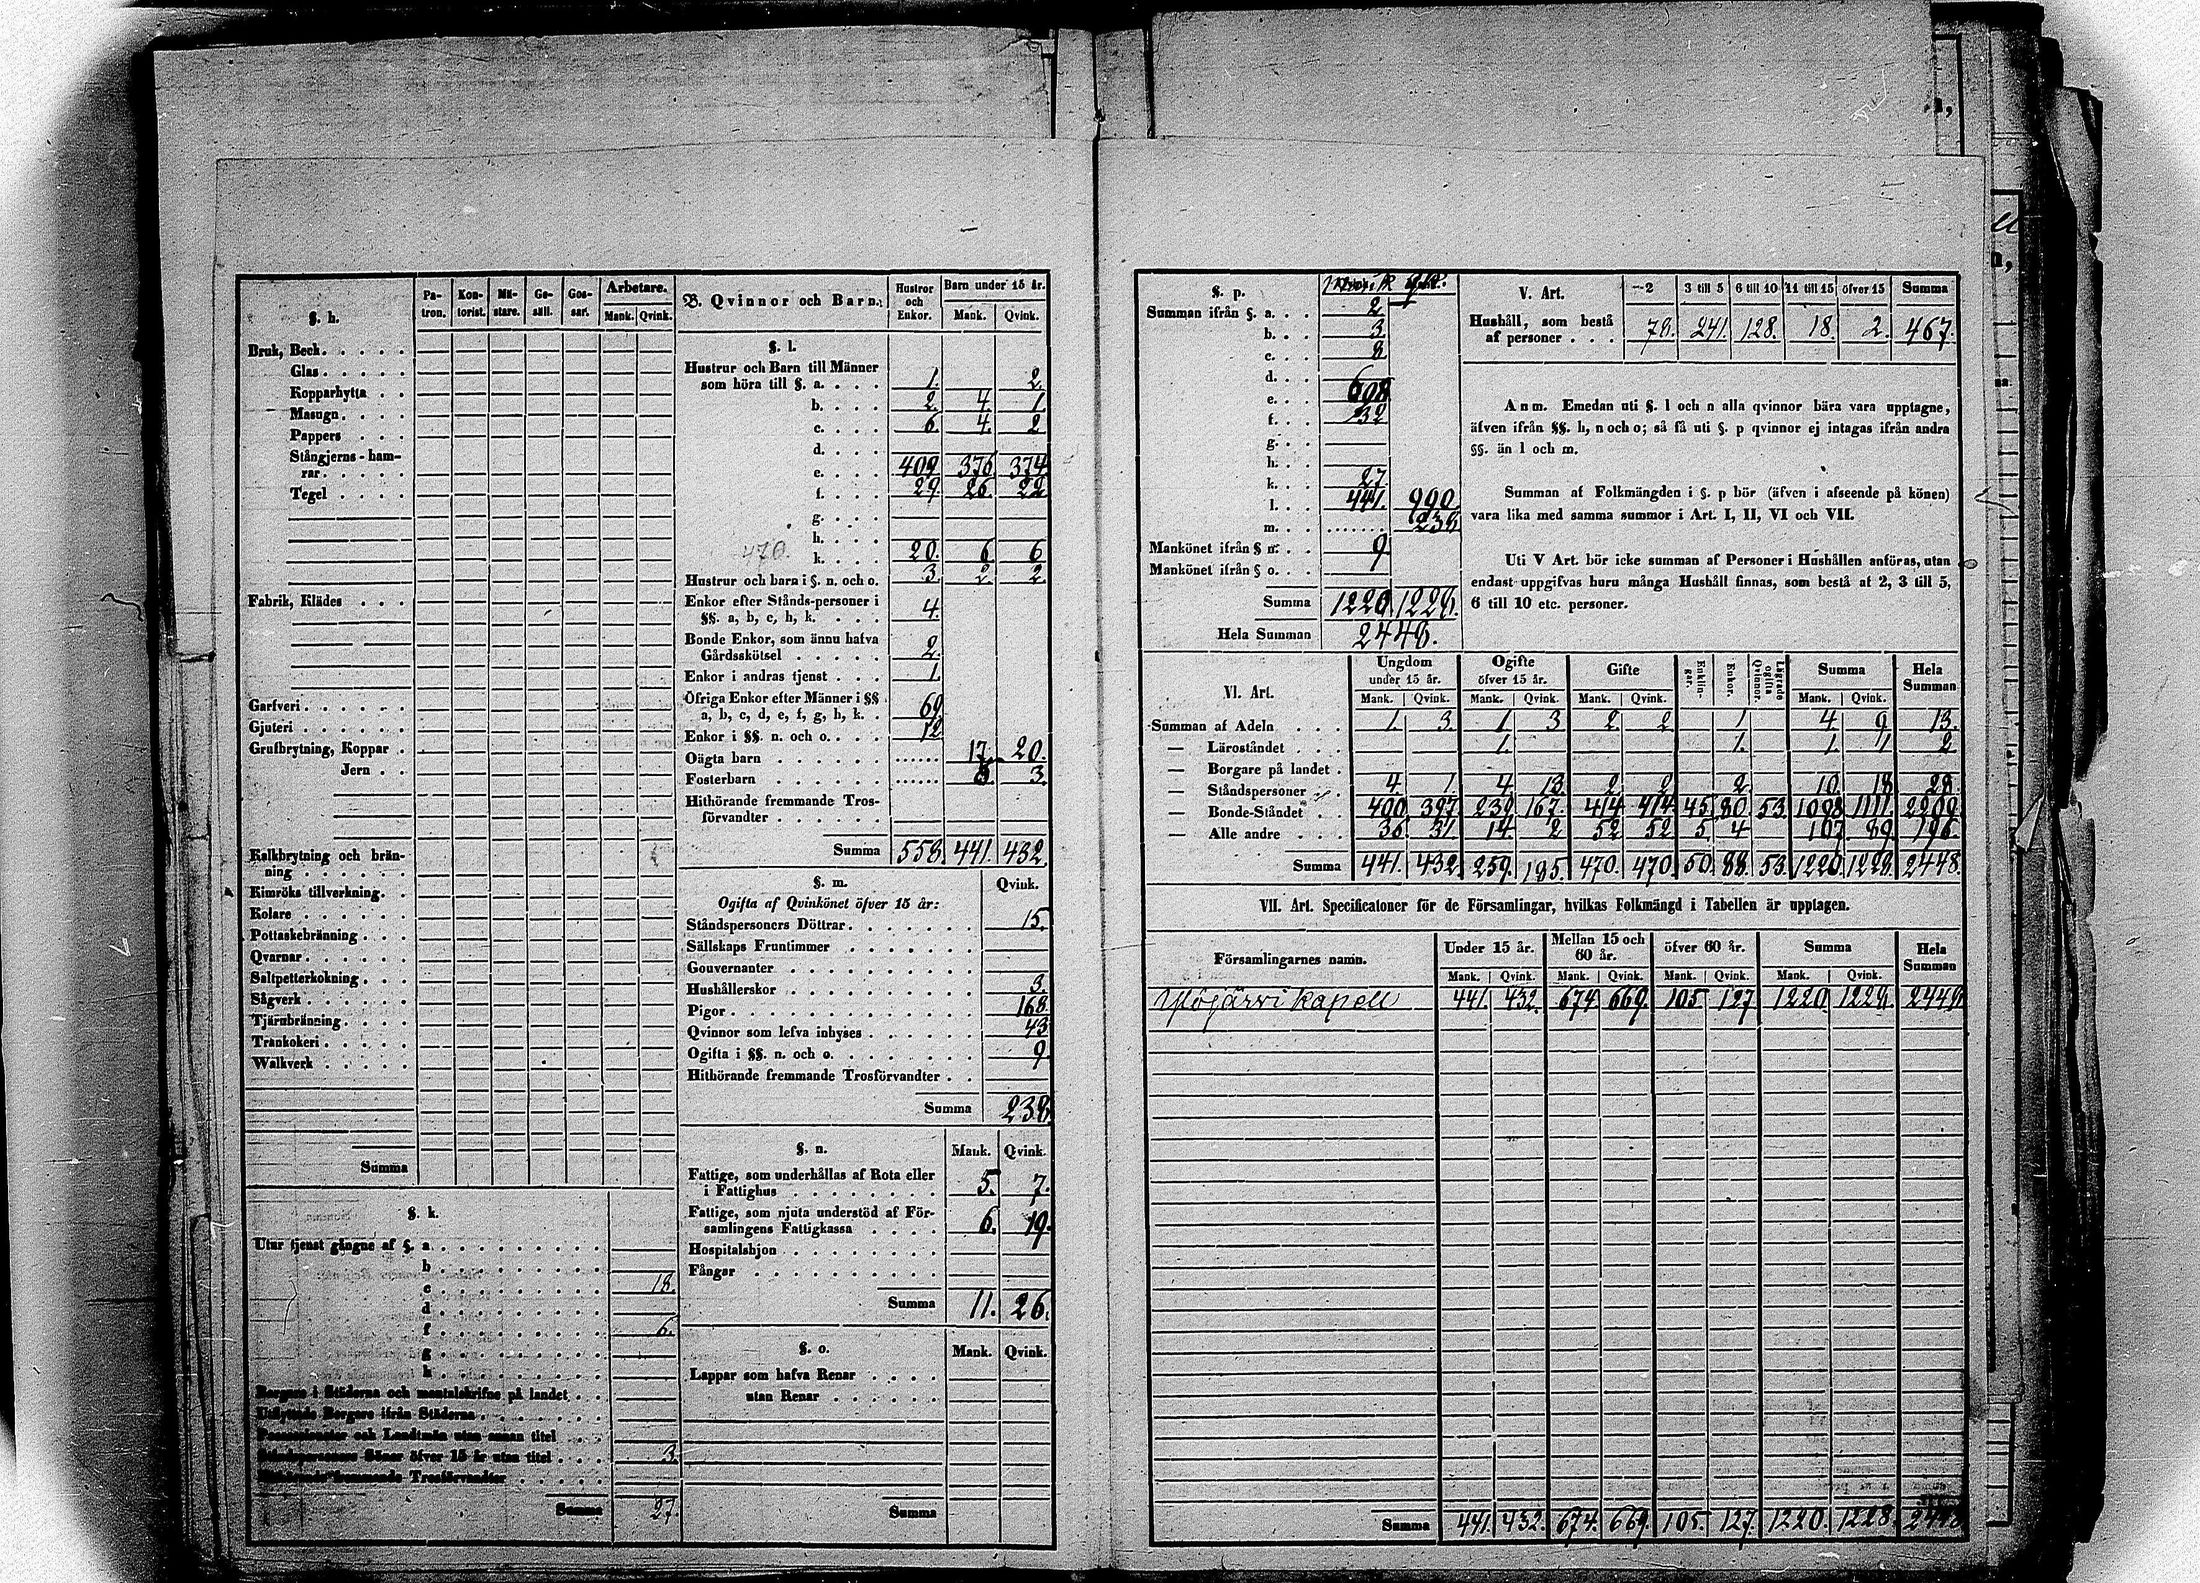 §. h. Pa-tron. Kon-torist. Mä-stare. Ge-säll. Gos-sar. Arbetare. Mank. Qvink.
Bruk, Beck
Glas
Kopparhytta
Masugn
Pappers
Stångjerns-ham-
rar
Tegel
Fabrik, Klädes
Garfveri
Gjuteri
Grufbrytning, Koppar
Jern
Kalkbrytning och brän-
ning
Kimröks tillverkning
Kolare
Pottaskebränning
Qvarnar
Saltpetterkokning
Sågverk
Tjärubränning
Trankokeri
Walkverk
Summa
§. k.
Utur tjenst gångne af §. a
b
c 18.
d
f 6.
g
h
Borgare i Städerna och mantalskrifne på landet
Utflyttade Borgare ifrån Städerna
Possessionater och Landtmän utan annan titel
Ståndspersoners Söner öfver 15 år utan titel 3.
fremmande Trosförvandter
Summa 27.
B. Qvinnor och Barn: Hustror och Enkor. Barn under 15 år. Mank. Qvink.
§. l.
Hustrur och Barn till Männer
som höra till §. a. 1. 2.
b. 2. 4. 1.
c. 6. 4. 2
d.
e. 409 376. 374.
f. 29. 26. 22
g.
h.
470. k. 20. 6 6
Hustrur och barn i §. n. och o. 3. 2. 2.
Enkor efter Stånds-personer i
§§. a, b, c, h, k. 4.
Bonde Enkor, som ännu hafva
Gårdsskötsel 2.
Enkor i andras tjenst 1.
Öfriga Enkor efter Männer i §§
a, b, c, d, e, f, g, h, k. 69
Enkor i §§. n. och o. 12
Oägta barn 17. 20.
Fosterbarn 3.
Hithörande fremmande Tros-
förvandter
Summa 558. 441. 432.
§. m. Qvink.
Ogifta af Qvinkönet öfver 15 år:
Ståndspersoners Döttrar 15.
Sällskaps Fruntimmer
Gouvernanter
Hushållerskor 3.
Pigor 168.
Qvinnor som lefva inhyses 43
Ogifta i §§. n. och o. 9.
Hithörande fremmande Trosförvandter
Summa 238.
§. n. Mank. Qvink.
Fattige, som underhållas af Rota eller
i Fattighus 5. 7.
Fattige, som njuta understöd af För-
samlingens Fattigkassa 6. 19.
Hospitalshjon
Fångar
Summa 11. 26.
§. o. Mank. Qvink.
Lappar som hafva Renar
utan Renar
Summa
§. p.
Summan ifrån §. a. 2
b. 3.
c. 8
d.
e. 698
f. 32
g.
h.
k. 27.
l. 441. 990.
m. 238
Mankönet ifrån § n. 9
Mankönet ifrån § o.
Summa 1220. 1228.
Hela Summan 2448.
V. Art. 2 3 till 5 6 till 10 11 till 15 öfver 15 Summa
Hushåll, som bestå
af personer 78. 241. 128. 18. 2. 467.
Anm. Emedan uti §. l och n alla qvinnor bära vara upptagne,
äfven ifrån §§. h, n och o; så få uti §. p qvinnor ej intagas ifrån andra
§§. än l och m.
Summan af Folkmängden i §. p bör (äfven i afseende på könen)
vara lika med samma summor i Art. I, II, VI och VII.
Uti V Art. bör icke summan af Personer i Hushållen anföras, utan
endast uppgifvas huru många Hushåll finnas, som bestå af 2, 3 till 5,
6 till 10 etc. personer.
VI. Art. Ungdom under 15 år. Ogifte öfver 15 år. Gifte Enklin-gar. Enkor. Lägrade ogifta Qvinnor. Summa Hela Summan
Mank. Qvink. Mank. Qvink. Mank. Qvink. Mank. Qvink.
Summan af Adeln 1. 3. 1 3 2 2 1 4 9 13.
— Läroståndet 1. 1. 1. 1 2
— Borgare på landet
— Ståndspersoner 4. 1. 4 13. 2 2 2. 10. 18 28.
— Bonde-Ståndet 400. 397. 239. 167. 414 414 45. 80 53. 1098 1111. 2209.
— Alle andre 36. 31. 14. 2 52 52 5 4 107. 89. 196.
Summa 441. 432. 259. 185. 470. 470. 50. 88. 53. 1220. 1228. 2448.
VII. Art. Specificatoner för de Församlingar, hvilkas Folkmängd i Tabellen är upptagen.
Församlingarnes namn. Under 15 år. Mellan 15 och 60 år. öfver 60 år. Summa Hela Summan
Mank. Qvink. Mank. Qvink. Mank. Qvink. Mank. Qvink.
Ylöjärvi Kapell 441. 432. 674. 669. 105. 127 1220. 1228. 2448
Summa 441. 432. 674. 669. 105. 127. 1220. 1228. 2448